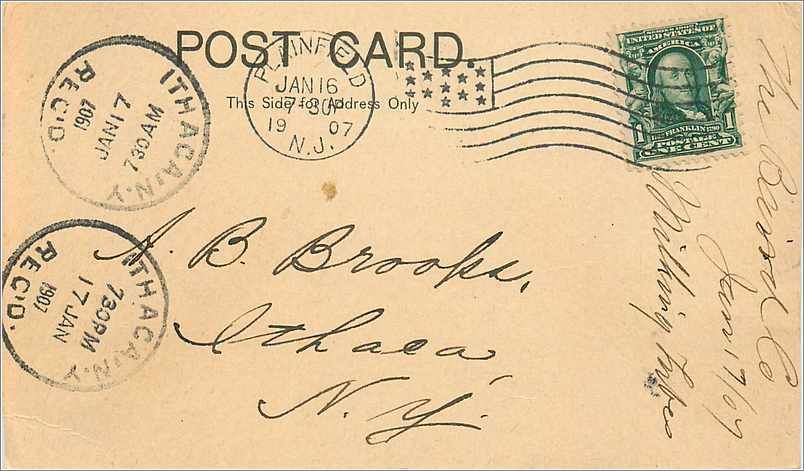 POST CARD.
This Side for Address Only
PLAINFIELD
JAN 16
7-30P
19 07
N.J.
UNITED STATES OF
AMERICA
1 FRANKLIN 1
POSTAGE
ONE CENT
ITHACA, N.Y.
JAN 17
7 30 AM
1907
REC'D.
ITHACA, N.Y.
7 30 PM
17 JAN
1907
REC'D.
A. B. Brooks,
Ithaca,
N. Y.
The
Co
Jan 17/07
Milking Tubes